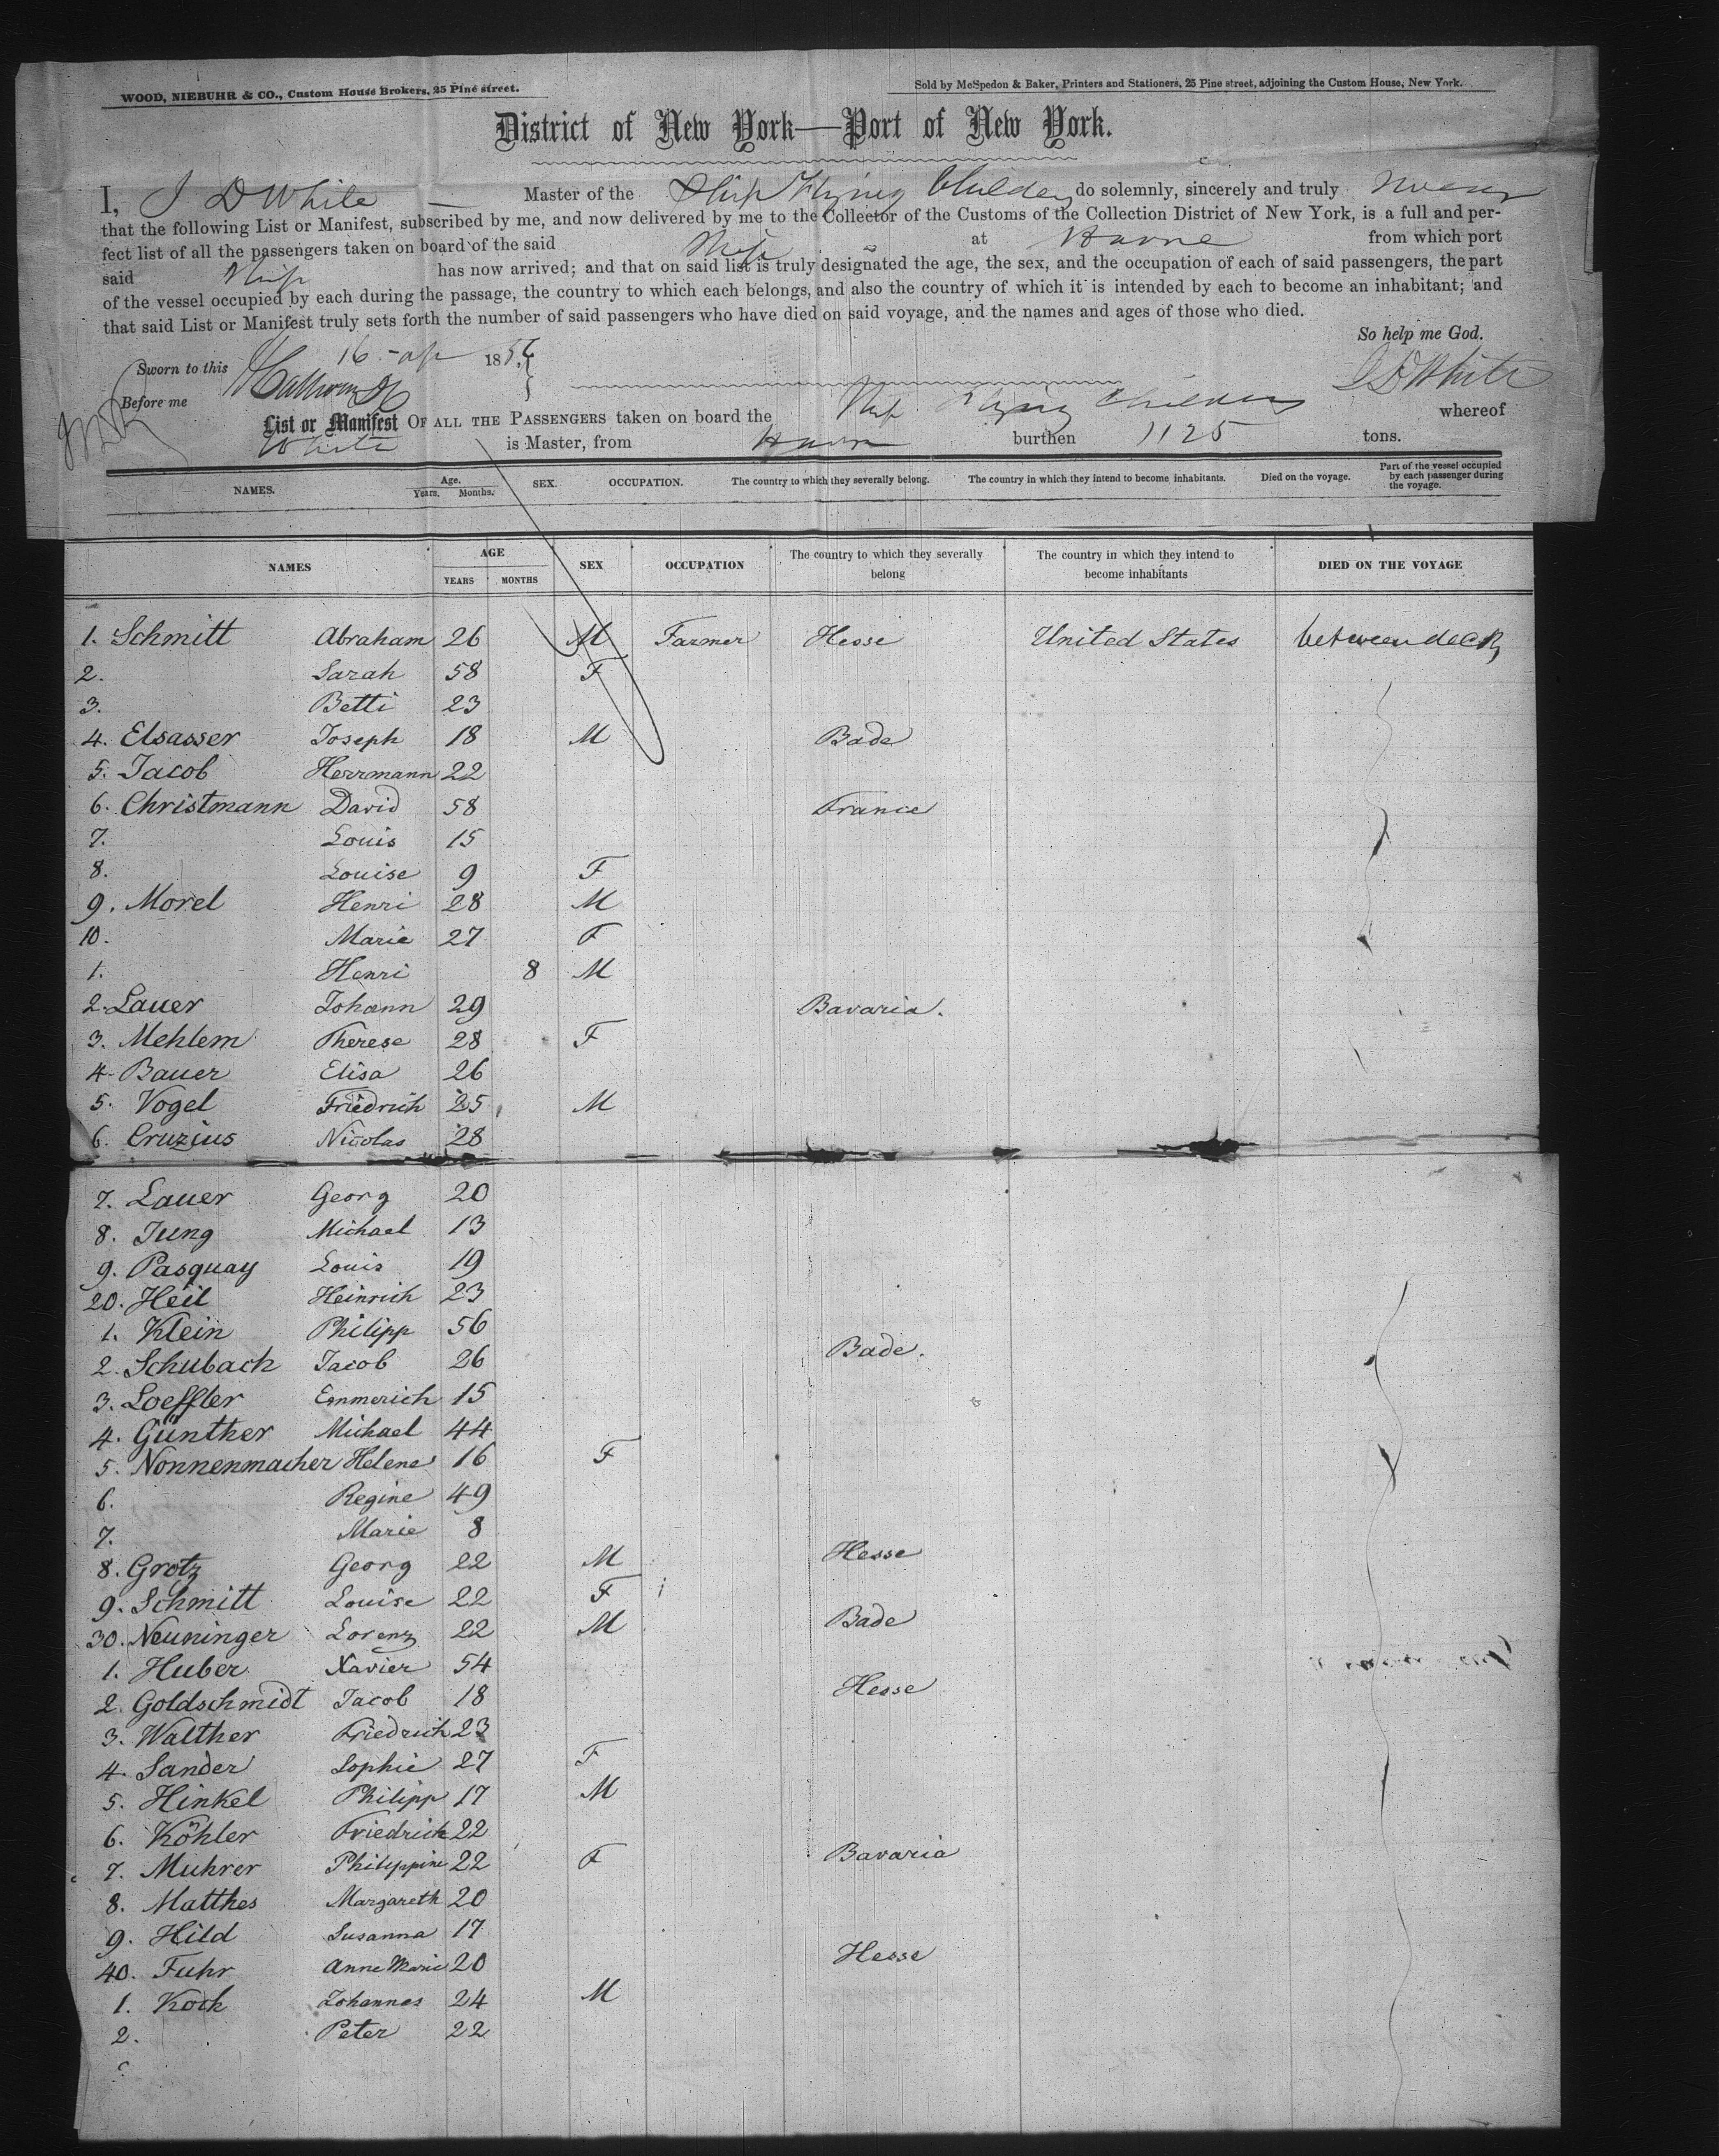 WOOD, NIEBUHR & CO., Custom House Brokers, 25 Pine street.
Sold by McSpedon & Baker, Printers and Stationers, 25 Pine street, adjoining the Custom House, New York.
District of New York—Port of New York.
I, J D White Master of the Ship Flying Childers do solemnly, sincerely and truly swear
that the following List or Manifest, subscribed by me, and now delivered by me to the Collector of the Customs of the Collection District of New York, is a full and per-
fect list of all the passengers taken on board of the said Ship at Havre from which port
said Ship has now arrived; and that on said list is truly designated the age, the sex, and the occupation of each of said passengers, the part
of the vessel occupied by each during the passage, the country to which each belongs, and also the country of which it is intended by each to become an inhabitant; and
that said List or Manifest truly sets forth the number of said passengers who have died on said voyage, and the names and ages of those who died.
So help me God.
Sworn to this 16 - ap 1856
J D White
Before me
List or Manifest OF ALL THE PASSENGERS taken on board the Ship Flying Childers whereof
White is Master, from Havre burthen 1125 tons.
NAMES. Age. Years. Months. SEX. OCCUPATION. The country to which they severally belong. The country in which they intend to become inhabitants. Died on the voyage. Part of the vessel occupied by each passenger during the voyage.
NAMES AGE YEARS MONTHS SEX OCCUPATION The country to which they severally belong The country in which they intend to become inhabitants DIED ON THE VOYAGE
1. Schmitt Abraham 26 M Farmer Hesse United States between deck
2. Sarah 58 F
3. Betti 23
4. Elsasser Joseph 18 M Bade
5. Jacob Herrmann 22
6. Christmann David 58 France
7. Louis 15
8. Louise 9 F
9. Morel Henri 28 M
10. Marie 27 F
1. Henri 8 M
2. Lauer Johann 29 Bavaria.
3. Mehlem Therese 28 F
4. Bauer Elisa 26
5. Vogel Friedrich 25 M
6. Cruzius Nicolas 28
7. Lauer Georg 20
8. Jung Michael 13
9. Pasquay Louis 19
20. Heil Heinrich 23
1. Klein Philipp 56
2. Schubach Jacob 26 Bade.
3. Loeffler Emmerich 15
4. Günther Michael 44
5. Nonnenmacher Helene 16 F
6. Regine 49
7. Marie 8
8. Grotz Georg 22 M Hesse
9. Schmitt Louise 22 F
30. Neuninger Lorenz 22 M Bade
1. Huber Xavier 54
2. Goldschmidt Jacob 18 Hesse
3. Walther Friedrich 23
4. Sander Sophie 27 F
5. Hinkel Philipp 17 M
6. Köhler Friedrich 22
7. Muhrer Philippine 22 F Bavaria
8. Matthes Margareth 20
9. Hild Susanna 17
40. Fuhr Anne Marie 20 Hesse
1. Koch Johannes 24 M
2. Peter 22